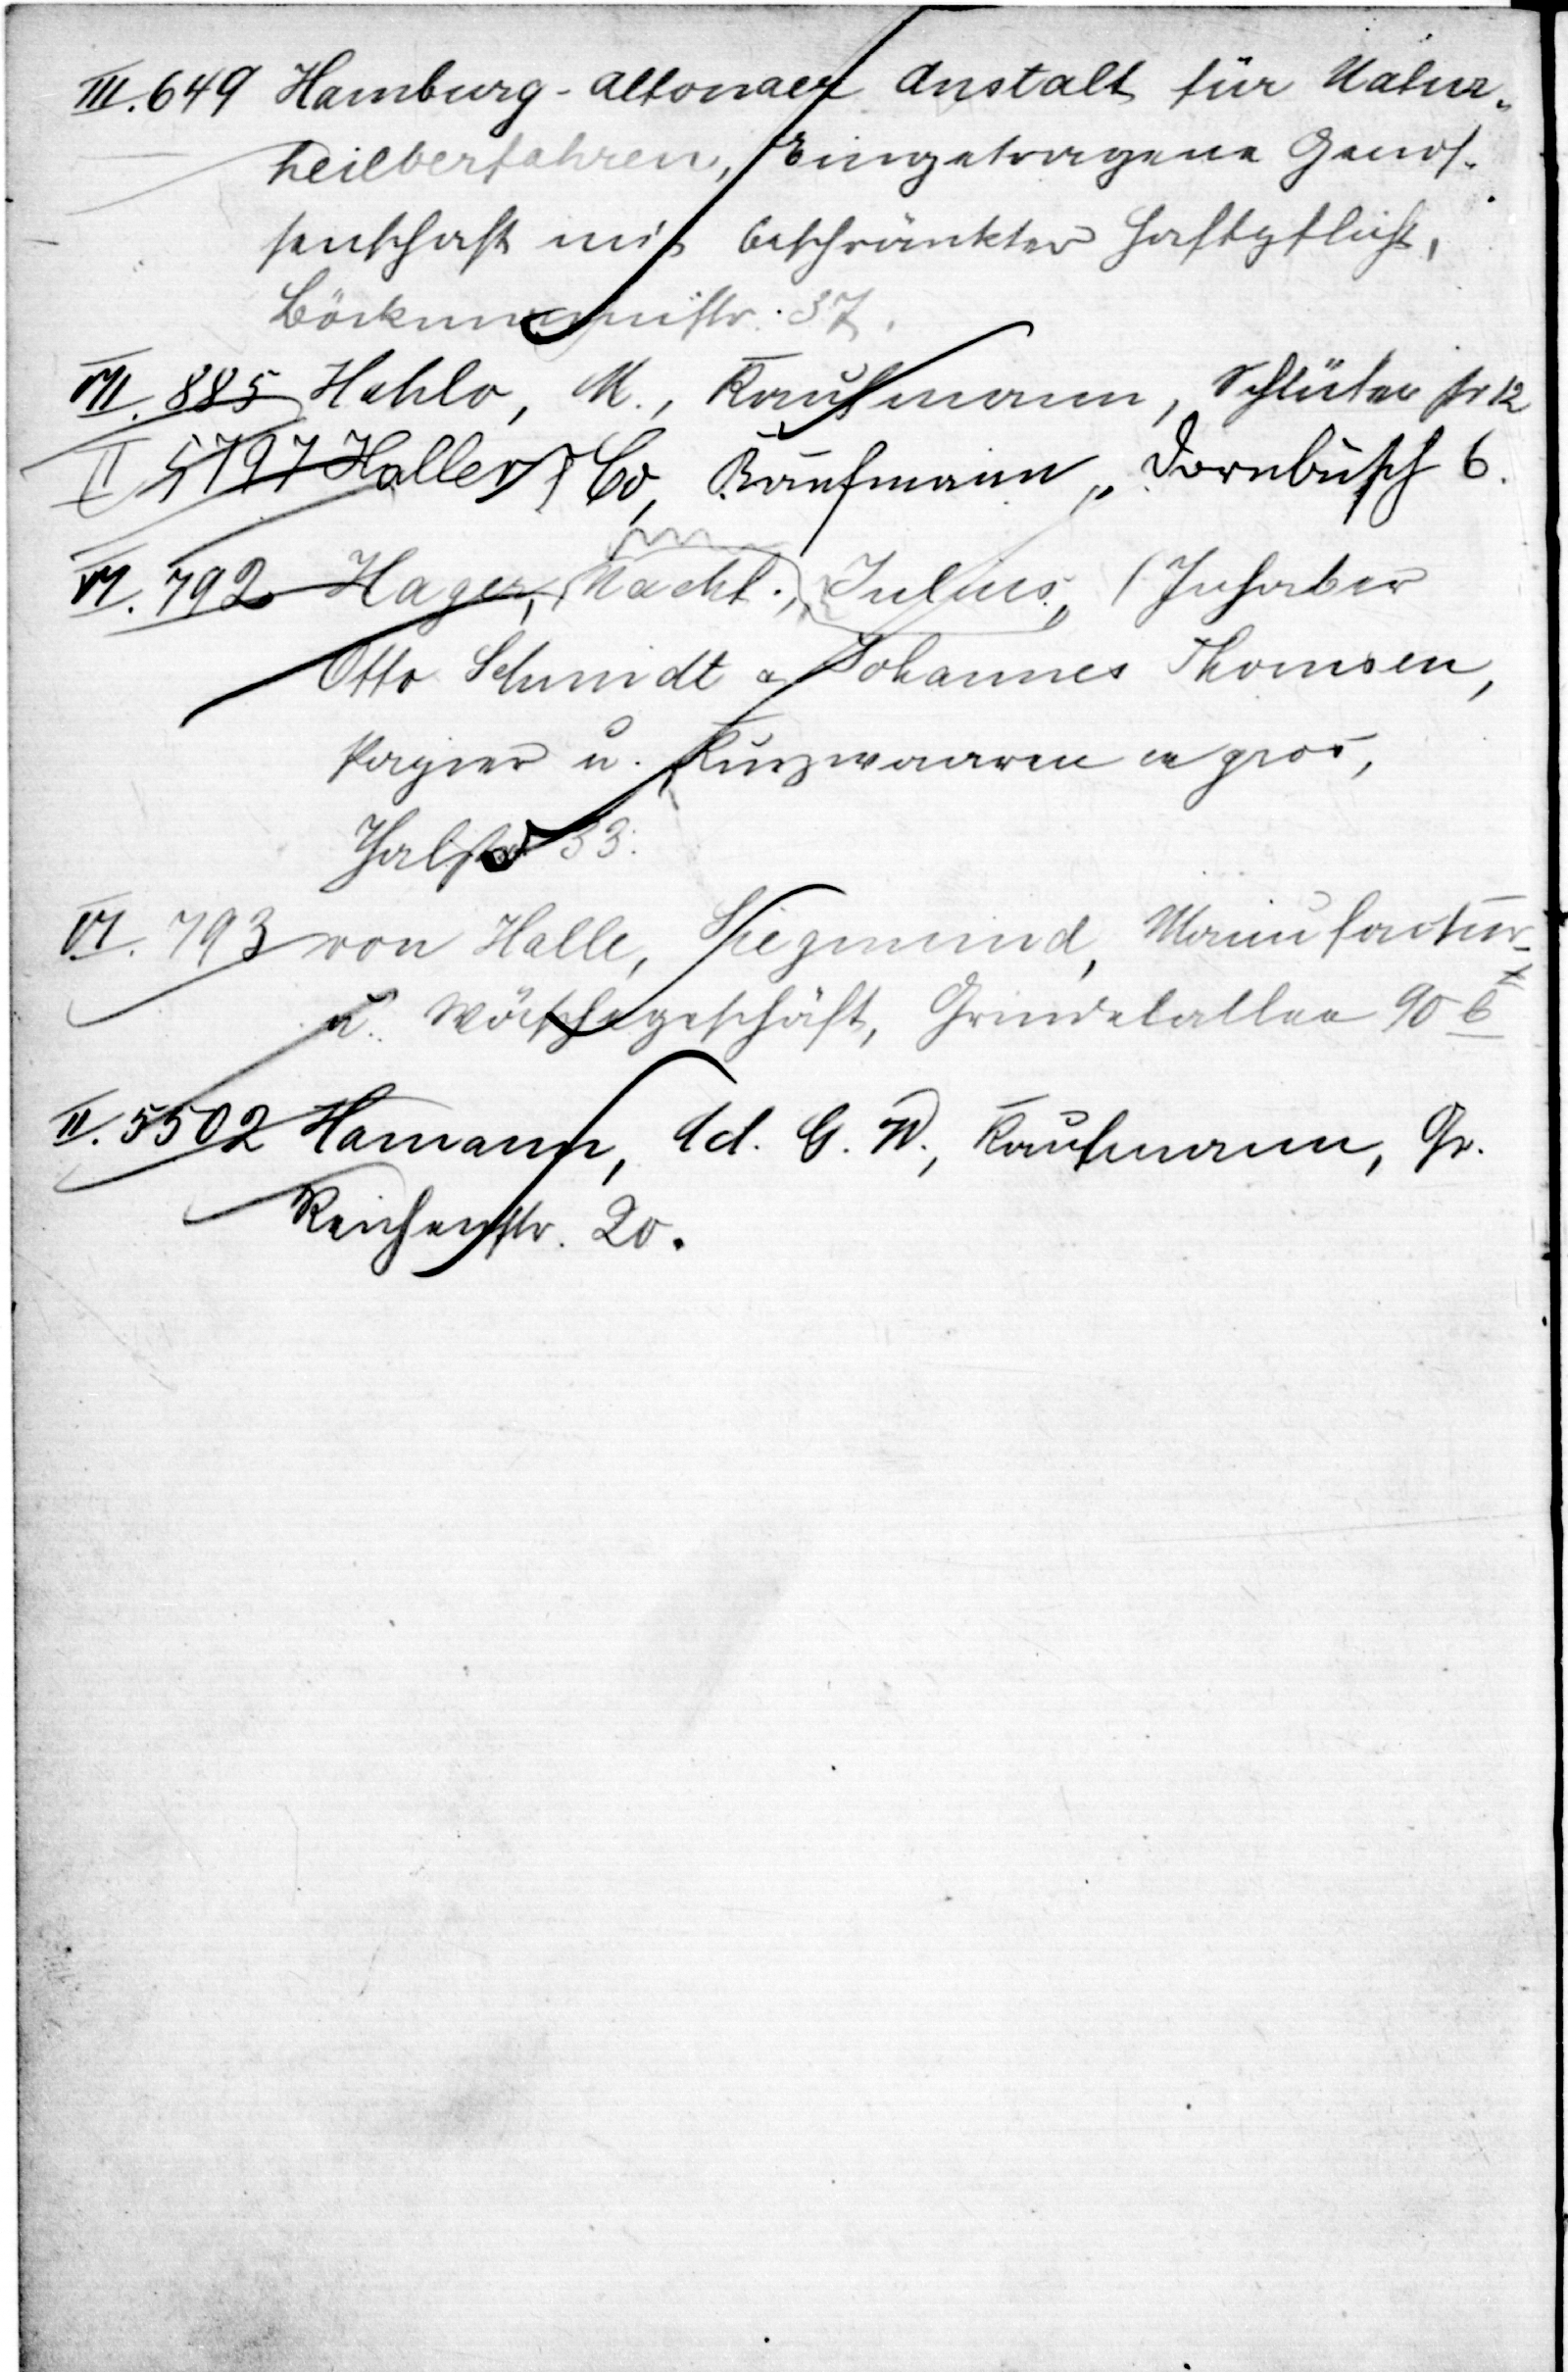 III. 649 Hamburg-Altonaer Anstalt für Natur-
heilverfahren, Eingetragene Genos-
senschaft mit beschränkter Haftpflicht,
Böckmannstr. 37.
VII. 885 Hahlo, M., Kaufmann, Schlüterstr 12
II 5797 Haller & Co, Kaufmann, Dornbusch 6.
VI. 792 Hager, Nachf., Julius, (Inhaber
Otto Schmidt & Johannes Thomsen,
Papier u. Kurzwaaren en gros,
33.
VI. 793 von Halle, Siegmund, Manufactur-
u. Wäschegeschäft, Grindelallee 90 b
II. 5502 Hamann, Ad. G. W., Kaufmann, Gr.
Reichenstr. 20.